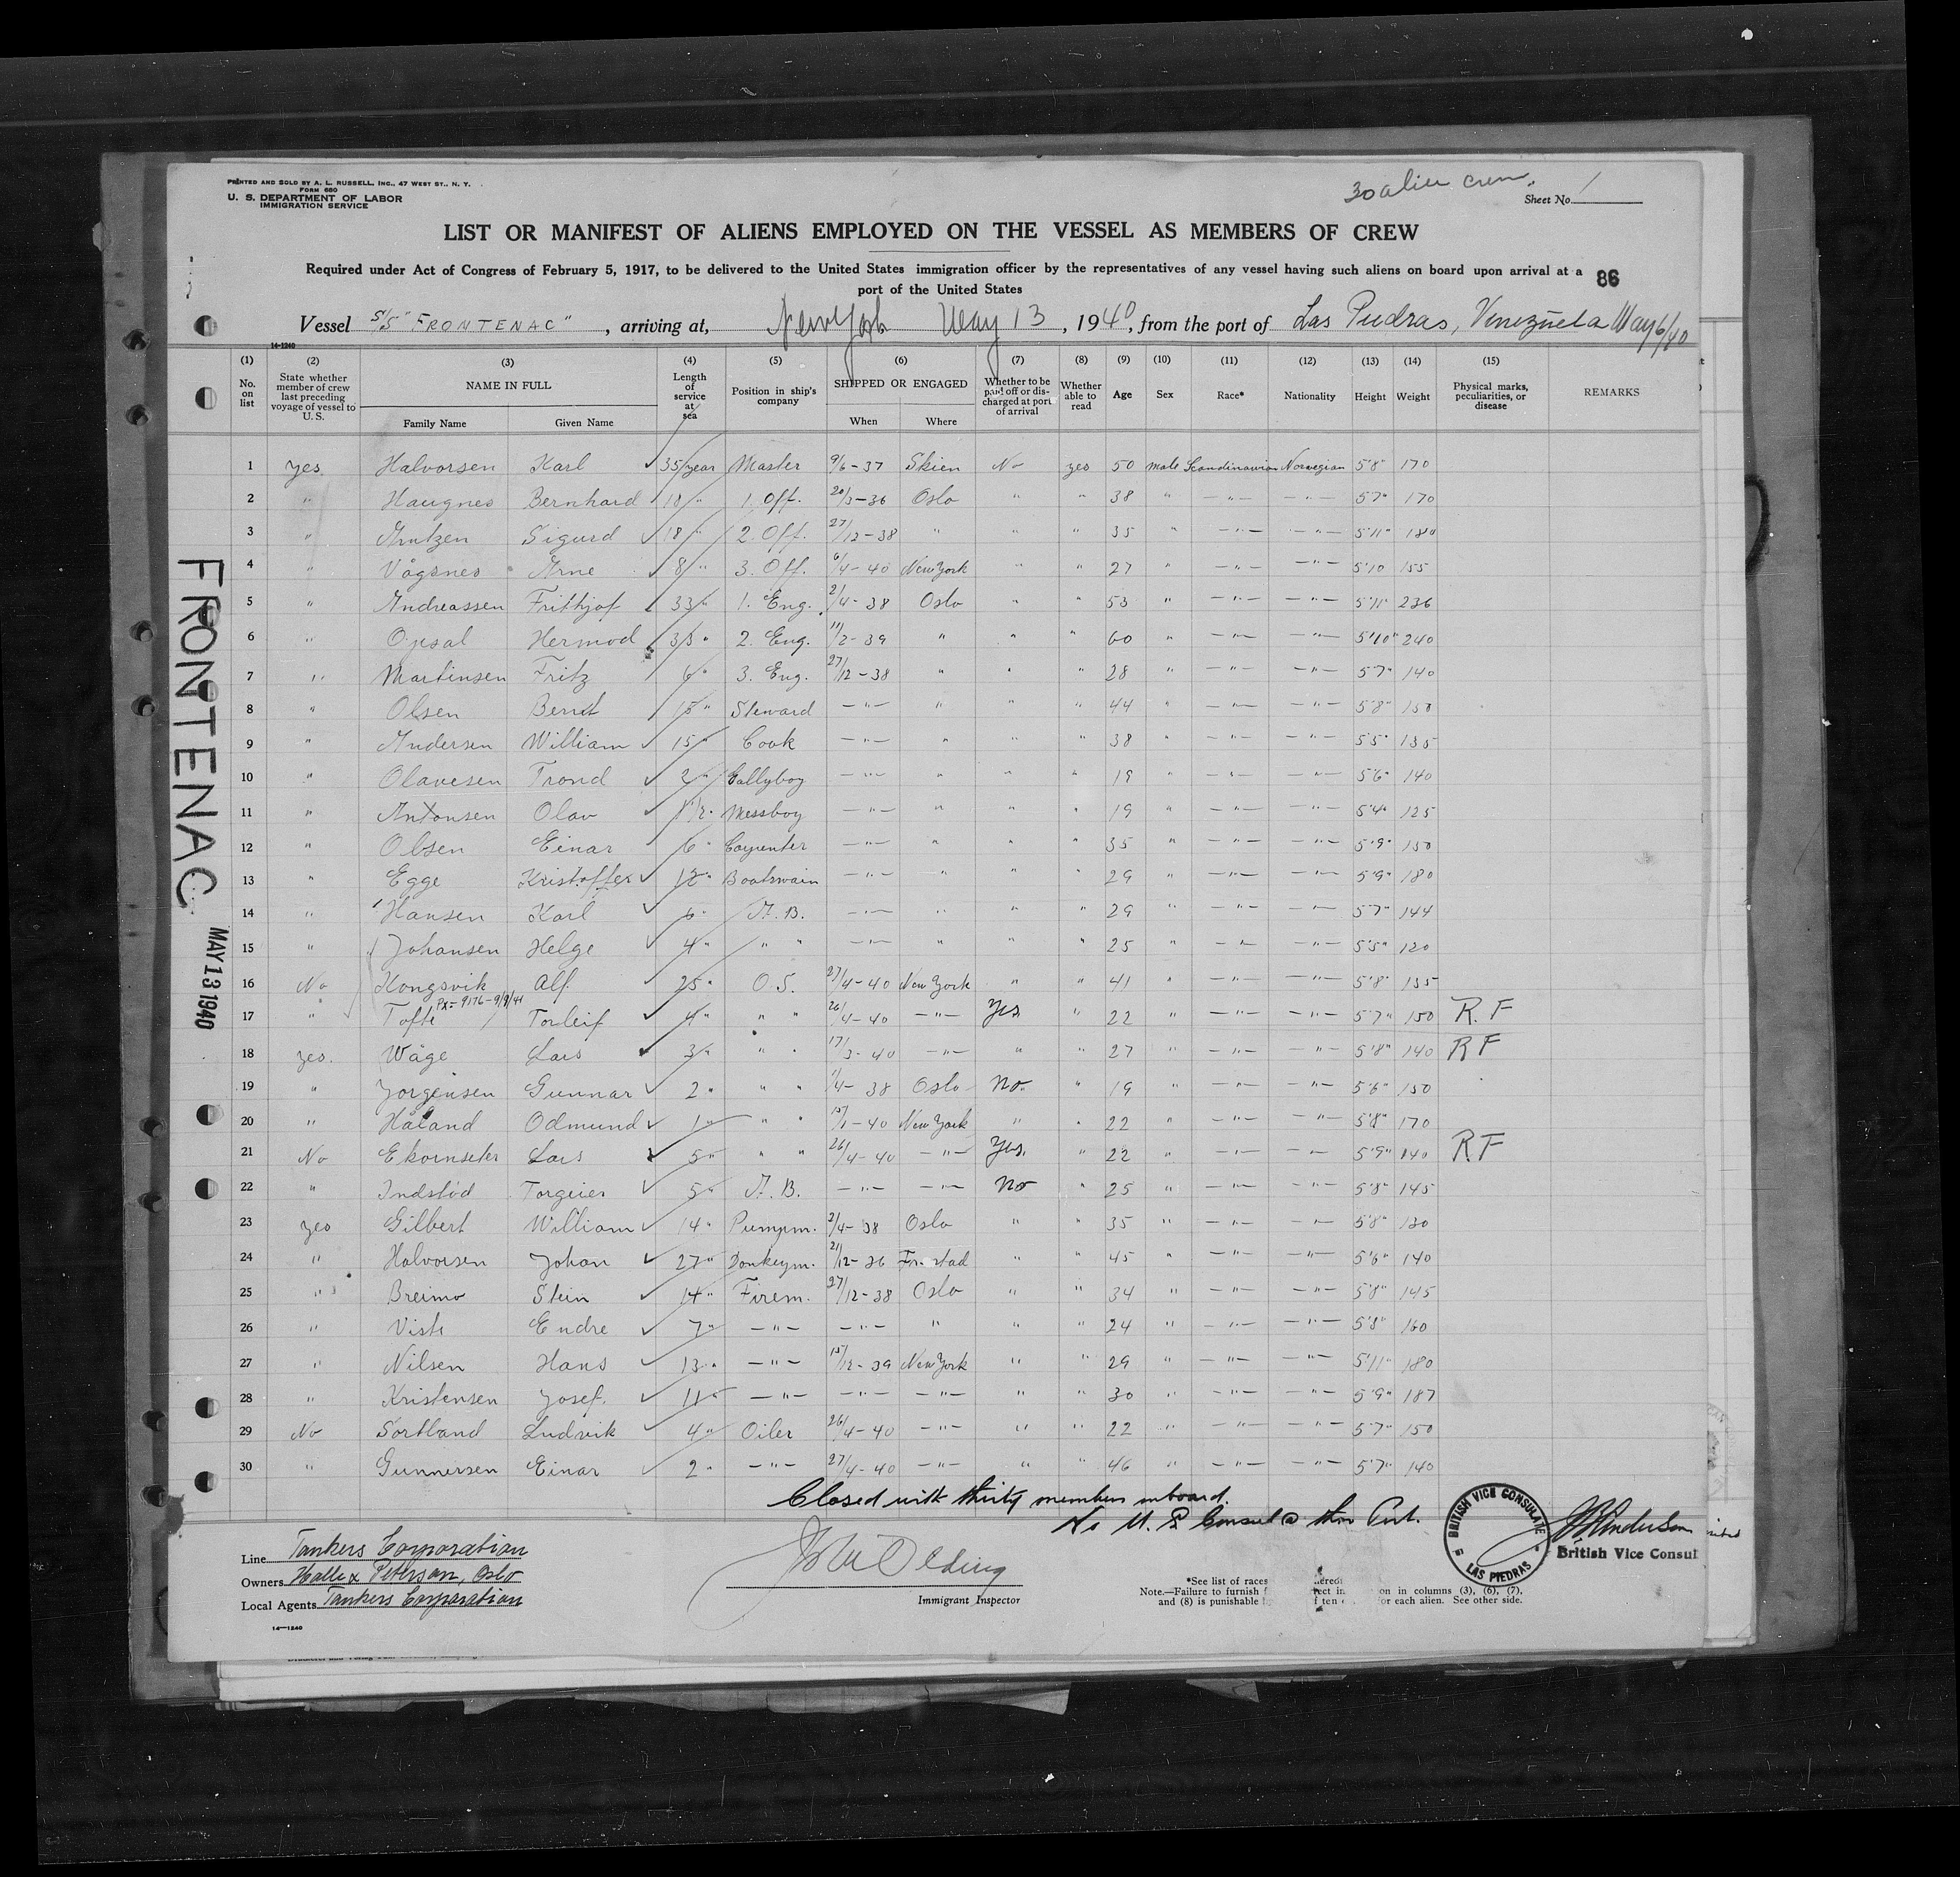 PRINTED AND SOLD BY A. L. RUSSELL, INC., 47 WEST ST., N. Y.
FORM 680
U. S. DEPARTMENT OF LABOR
IMMIGRATION SERVICE
30 alien crew.
Sheet No. 1
LIST OR MANIFEST OF ALIENS EMPLOYED ON THE VESSEL AS MEMBERS OF CREW
Required under Act of Congress of February 5, 1917, to be delivered to the United States immigration officer by the representatives of any vessel having such aliens on board upon arrival at a
port of the United States
86
Vessel S/S "FRONTENAC", arriving at, New York May 13, 1940, from the port of Las Piedras, Venezuela May 6/40
14-1240
(1) (2) (3) (4) (5) (6) (7) (8) (9) (10) (11) (12) (13) (14) (15)
No. on list State whether member of crew last preceding voyage of vessel to U. S. NAME IN FULL Length of service at sea Position in ship's company SHIPPED OR ENGAGED Whether to be paid off or discharged at port of arrival Whether able to read Age Sex Race* Nationality Height Weight Physical marks, peculiarities, or disease REMARKS
Family Name Given Name When Where
1 yes Halvorsen Karl 35 year Master 9/6-37 Skien No yes 50 male Scandinavian Norwegian 5'8" 170
2 " Haugnes Bernhard 18 " 1. Off. 20/3-36 Oslo " " 38 " -"- -"- 5'7" 170
3 " Arntzen Sigurd 18 " 2. Off. 27/12-38 " " " 35 " -"- -"- 5'11" 180
4 " Vågsnes Arne 8 " 3. Off. 6/4-40 New York " " 27 " -"- -"- 5'10 155
5 " Andreassen Frithjof 33 " 1. Eng. 2/4-38 Oslo " " 53 " -"- -"- 5'11" 236
6 " Opsal Hermod 35 " 2. Eng. 11/2-39 " " " 60 " -"- -"- 5'10" 240
7 " Martinsen Fritz 6 " 3. Eng. 27/12-38 " " " 28 " -"- -"- 5'7" 140
8 " Olsen Bernt 15 " Steward -"- " " " 44 " -"- -"- 5'8" 150
9 " Andersen William 15 " Cook -"- " " " 38 " -"- -"- 5'5" 135
10 " Olavesen Trond 2 " Gallyboy -"- " " " 19 " -"- -"- 5'6" 140
11 " Antonsen Olav 1 1/2 " Messboy -"- " " " 19 " -"- -"- 5'4" 125
12 " Olsen Einar 6 " Carpenter -"- " " " 35 " -"- -"- 5'9" 150
13 " Egge Kristoffer 12 " Boatswain -"- " " " 29 " -"- -"- 5'9" 180
14 " Hansen Karl 6 " A. B. -"- " " " 29 " -"- -"- 5'7" 144
15 " Johansen Helge 4 " " " -"- " " " 25 " -"- -"- 5'5" 120
16 No Kongsvik Alf 25 " O. S. 27/4-40 New York " " 41 " -"- -"- 5'8" 135
17 " Tofte Torleif 4 " " " 26/4-40 -"- Yes " 22 " -"- -"- 5'7" 150 R. F
18 yes. Wåge Lars 3 " " " 17/3-40 -"- " " 27 " -"- -"- 5'8" 140 RF
19 " Jorgensen Gunnar 2 " " " 1/4-38 Oslo No " 19 " -"- -"- 5'6" 150
20 " Håland Odmund 1 " " " 15/1-40 New York " " 22 " -"- -"- 5'8" 170
21 No Ekornseter Lars 5 " " " 26/4-40 -"- Yes. " 22 " -"- -"- 5'9" 140 RF
22 " Indstöd Torgeier 5 " A. B. -"- -"- No " 25 " -"- -"- 5'8" 145
23 yes Gilbert William 14 " Pumpm. 2/4-38 Oslo " " 35 " -"- -"- 5'8" 130
24 " Halvorsen Johan 27 " Donkeym. 21/12-36 " " 45 " -"- -"- 5'6" 140
25 " Breimo Stein 14 " Firem. 27/12-38 Oslo " " 34 " -"- -"- 5'8" 145
26 " Viste Endre 7 " -"- -"- " " " 24 " -"- -"- 5'8" 160
27 " Nilsen Hans 13 " -"- 15/12-39 New York " " 29 " -"- -"- 5'11" 180
28 " Kristensen Josef. 11 " -"- -"- -"- " " 30 " -"- -"- 5'9" 187
29 No Sortland Ludvik 4 " Oiler 26/4-40 -"- " " 22 " -"- -"- 5'7" 150
30 " Gunnersen Einar 2 " -"- 27/4-40 -"- " " 46 " -"- -"- 5'7" 140
Closed with thirty members onboard.
No U. S. Consul @ this Port.
FRONTENAC MAY 13 1940
Line Tankers Corporation
Owners Halle & Peterson, Oslo
Local Agents Tankers Corporation
14-1240
Immigrant Inspector
BRITISH VICE CONSULATE
LAS PIEDRAS
British Vice Consul
*See list of races
Note.—Failure to furnish on in columns (3), (6), (7),
and (8) is punishable for each alien. See other side.